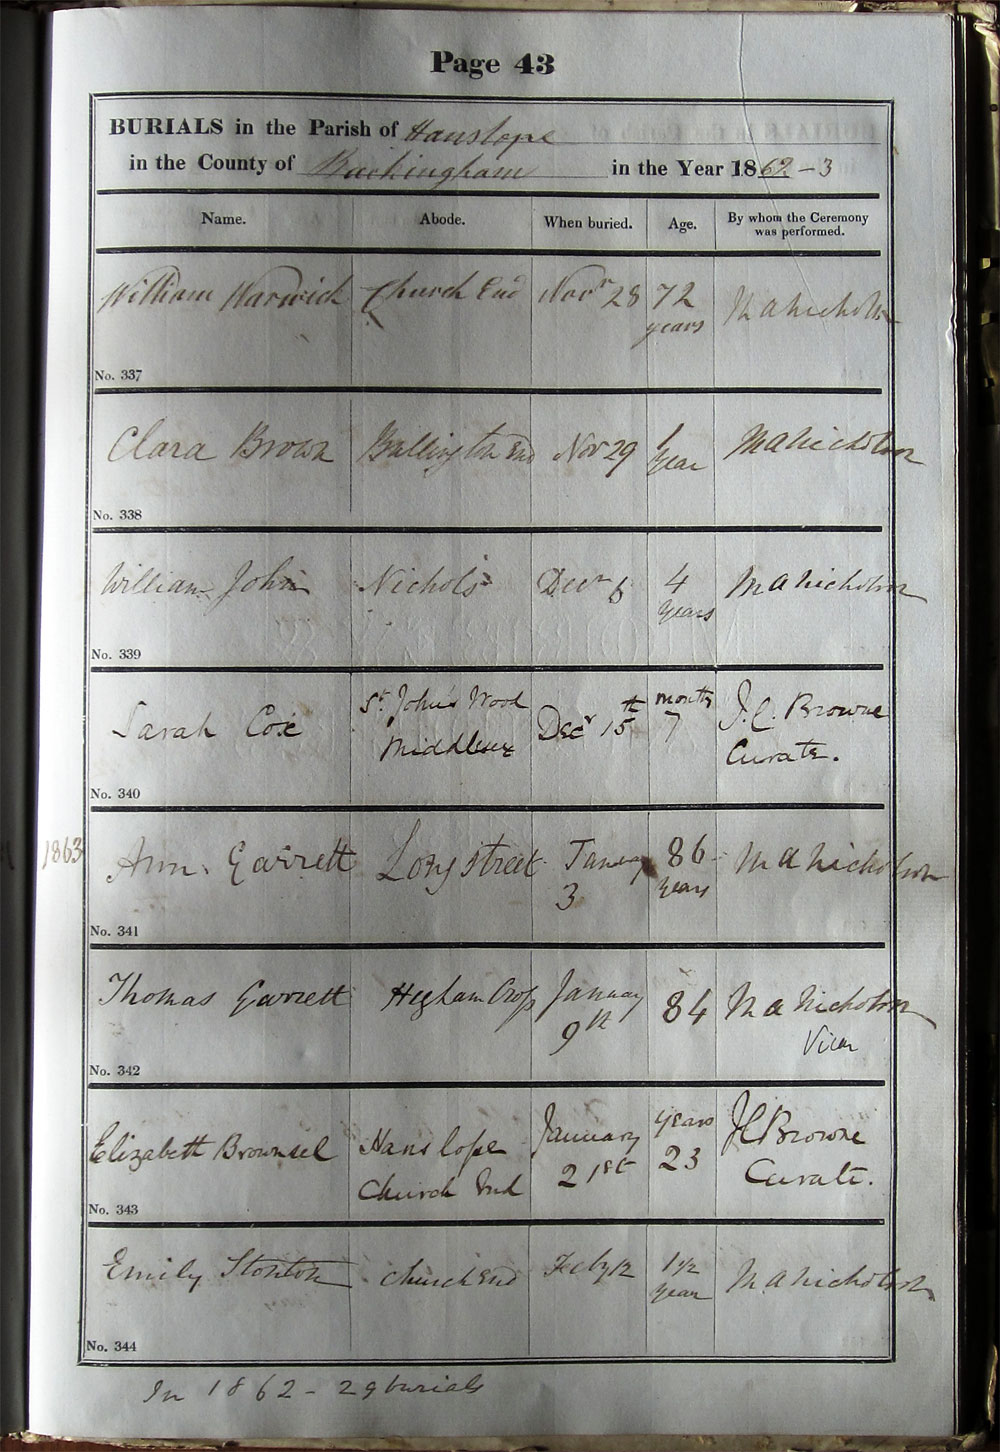 Page 43
BURIALS in the Parish of Hanslope
in the County of Buckingham in the Year 1862-3
Name. Abode. When buried. Age. By whom the Ceremony was performed.
William Warwick Church End Novr 28 72 years M A Nicholson
No. 337
Clara Brown Bullington End Nov 29 1 year M A Nicholson
No. 338
William John Nichols Decr 6 4 years M A Nicholson
No. 339
Sarah Cox St. John's Wood Middlesex Decr 15th months 7 J. C. Browne Curate.
No. 340
1863
Ann Garrett Long Street January 3 86 years M A Nicholson
No. 341
Thomas Garrett Higham Cross January 9th 84 M A Nicholson Vicar
No. 342
Elizabeth Brownsel Hanslope Church End January 21st years 23 J C Browne Curate.
No. 343
Emily Church End Feby 12 1 1/2 year M A Nicholson
No. 344
In 1862 - 29 burials